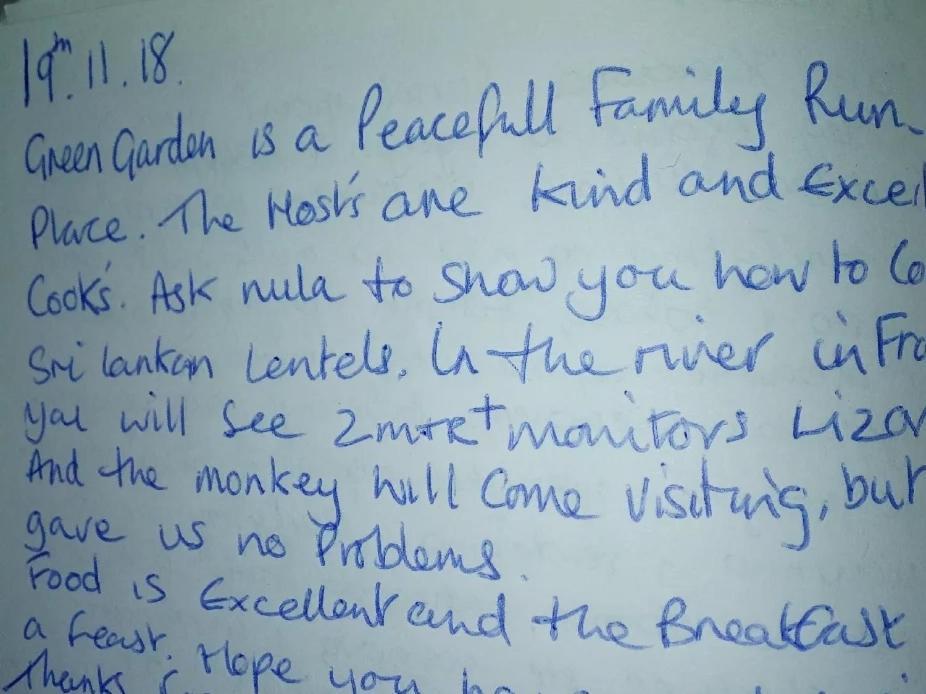 19th.11.18.
Green Garden is a Peacefull Family Run
Place. The Host's are kind and Excel
Cook's. Ask nula to show you how to Co
Sri lankan Lentels. In the river in Fro
you will See 2mtr+ monitors Liza
And the monkey will Come visiting, but
gave us no Problems.
Food is Excellent and the Breakfast
a feast. Hope you
Thanks